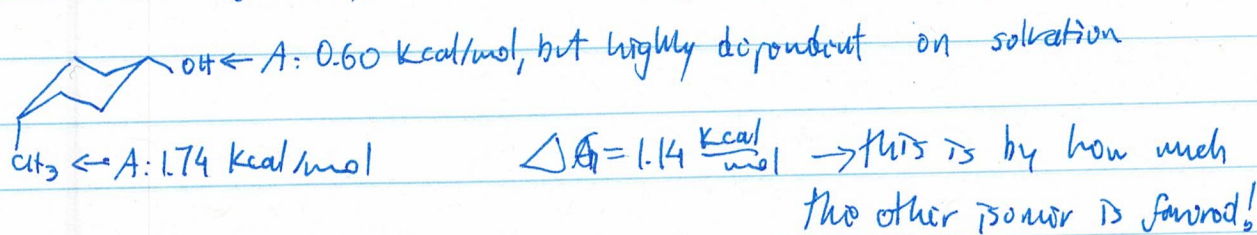 OH ← A: 0.60 kcal/mol, but highly dependent on solvation
CH₃ ← A: 1.74 kcal/mol ΔG = 1.14 kcal/mol → this is by how much
the other isomer is favored!